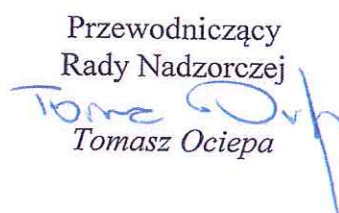 Przewodniczący
Rady Nadzorczej
Tomasz Ociepa